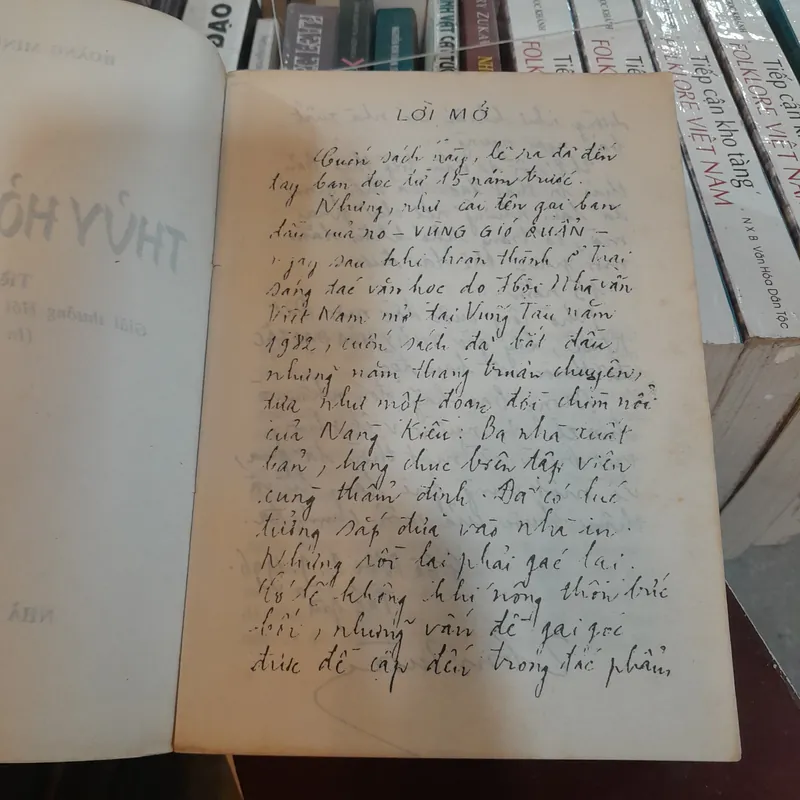 HOÀNG MINH
THỦY HỎ
Tiể
Giải thưởng Hội
NHÀ
ĐẠO
Tiếp cận kho tàng
FOLKLORE VIỆT NAM
Tiếp cận kho tàng
FOLKLORE VIỆT NAM
N X B Văn Hóa Dân Tộc
LỜI MỞ
Cuốn sách này, lẽ ra đã đến
tay bạn đọc từ 15 năm trước.
Nhưng, như cái tên gai ban
đầu của nó – VÙNG GIÓ QUẨN –
ngay sau khi hoàn thành ở Trại
sáng tác văn học do Hội Nhà văn
Việt Nam mở tại Vũng Tàu năm
1982, cuốn sách đã bắt đầu
những năm tháng truân chuyên,
tựa như một đoạn đời chìm nổi
của Nàng Kiều: Ba nhà xuất
bản, hàng chục biên tập viên
cùng thẩm định. Đã có lúc
tưởng sắp đưa vào nhà in.
Nhưng rồi lại phải gác lại.
Có lẽ không khí nông thôn bức
bối, những vấn đề gai góc
được đề cập đến trong tác phẩm